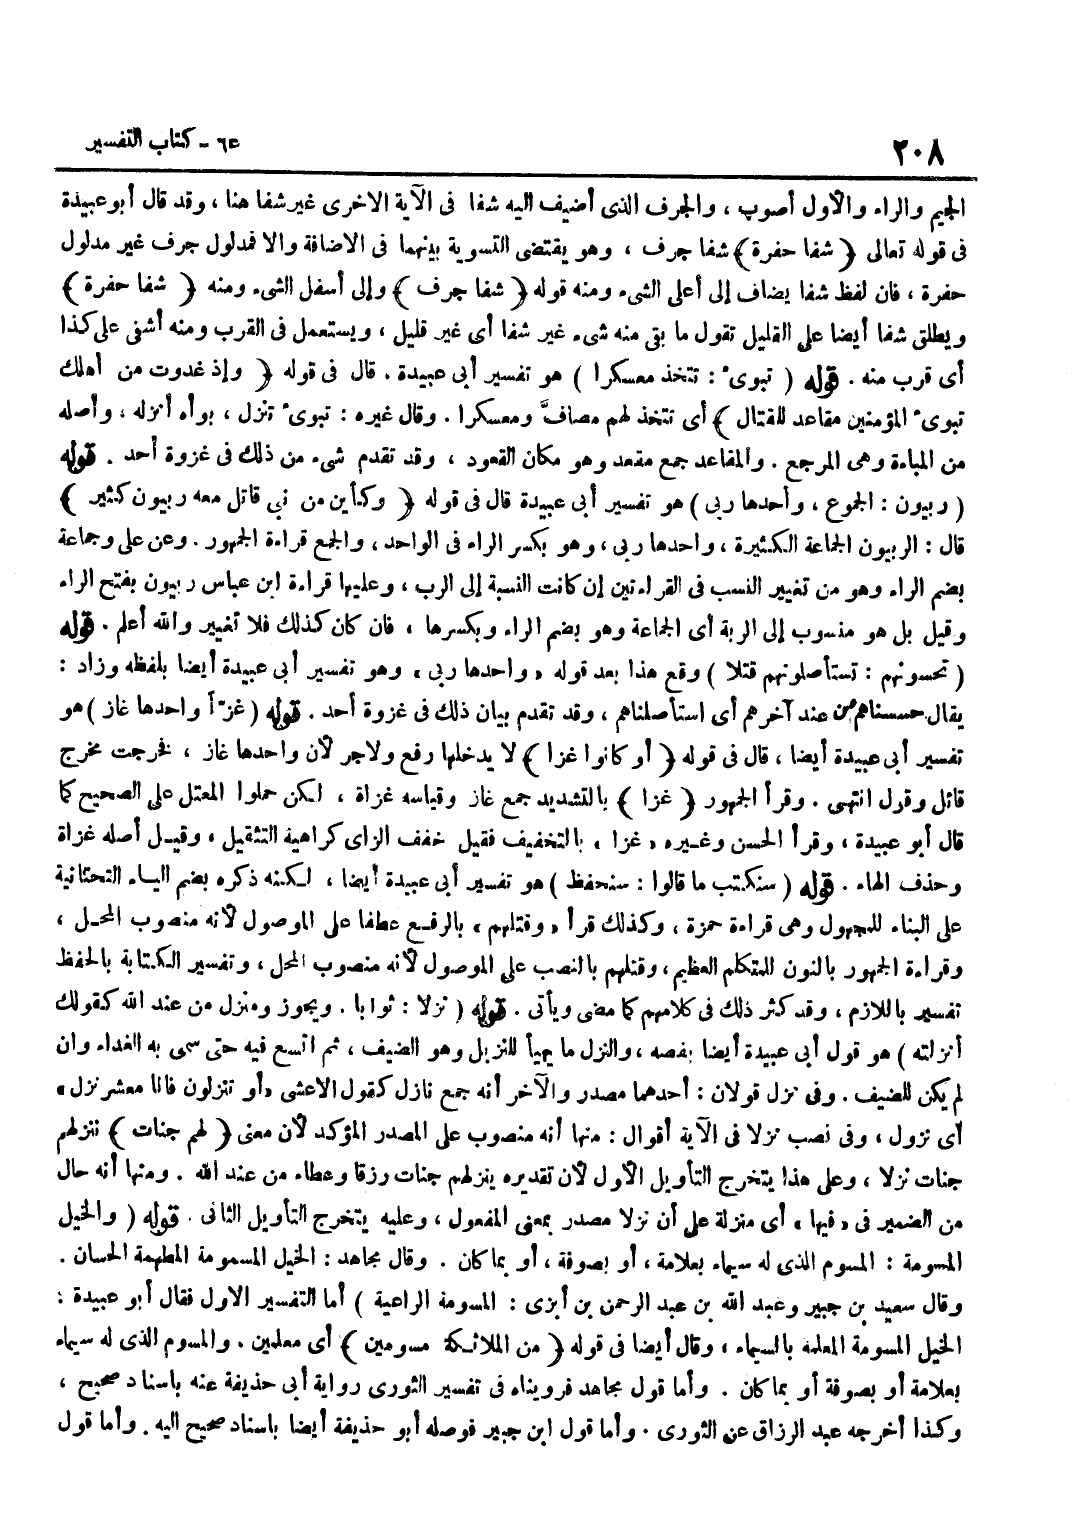 ٢٠٨
٦٥ - كتاب التفسير
الجيم والراء والأول أصوب ، والجرف الذى أضيف اليه شفا فى الآية الاخرى غير شفا هنا ، وقد قال أبو عبيدة
فى قوله تعالى ﴿ شفا حفرة ﴾ شفا جرف ، وهو يقتضى التسوية بينهما فى الاضافة والا فمدلول جرف غير مدلول
حفرة ، فان لفظ شفا يضاف إلى أعلى الشىء ومنه قوله ﴿ شفا جرف ﴾ وإلى أسفل الشىء ومنه ﴿ شفا حفرة ﴾
ويطلق شفا أيضا على القليل تقول ما بقى منه شىء غير شفا أى غير قليل ، ويستعمل فى القرب ومنه أشفى على كذا
أى قرب منه . قوله ( تبوئ : تتخذ معسكرا ) هو تفسير أبى عبيدة . قال فى قوله ﴿ وإذ غدوت من أهلك
تبوئ المؤمنين مقاعد للقتال ﴾ أى تتخذ لهم مصافَّ ومعسكرا . وقال غيره : تبوئ تنزل ، بوأه أنزله ، وأصله
من المباءة وهى المرجع . والمقاعد جمع مقعد وهو مكان القعود ، وقد تقدم شىء من ذلك فى غزوة أحد . قوله
( ربيون : الجموع ، وأحدها ربى ) هو تفسير أبى عبيدة قال فى قوله ﴿ وكأين من نبى قاتل معه ربيون كثير ﴾
قال : الربيون الجماعة الكثيرة ، واحدها ربى ، وهو بكسر الراء فى الواحد ، والجمع قراءة الجمهور . وعن على وجماعة
بضم الراء وهو من تغيير النسب فى القراءتين إن كانت النسبة إلى الرب ، وعليها قراءة ابن عباس ربيون بفتح الراء
وقيل بل هو منسوب إلى الربة أى الجماعة وهو بضم الراء وبكسرها ، فان كان كذلك فلا تغيير والله أعلم . قوله
( تحسونهم : تستأصلونهم قتلا ) وقع هذا بعد قوله « واحدها ربى » وهو تفسير أبى عبيدة أيضا بلفظه وزاد :
يقال حسسناهم من عند آخرهم أى استأصلناهم ، وقد تقدم بيان ذلك فى غزوة أحد . قوله ( غزّاً واحدها غاز ) هو
تفسير أبى عبيدة أيضا ، قال فى قوله ﴿ أو كانوا غزا ﴾ لا يدخلها رفع ولا جر لأن واحدها غاز ، فخرجت مخرج
قائل وقول انتهى . وقرأ الجمهور ﴿ غزا ﴾ بالتشديد جمع غاز وقياسه غزاة ، لكن حملوا المعتل على الصحيح كما
قال أبو عبيدة ، وقرأ الحسن وغيره « غزا » بالتخفيف فقيل خفف الزاى كراهية التثقيل ، وقيل أصله غزاة
وحذف الهاء . قوله ( سنكتب ما قالوا : سنحفظ ) هو تفسير أبى عبيدة أيضا ، لكنه ذكره بضم الياء التحتانية
على البناء للمجهول وهى قراءة حمزة ، وكذلك قرأ « وقتلهم » بالرفع عطفا على الموصول لأنه منصوب المحل ،
وقراءة الجمهور بالنون للمتكلم العظيم ، وقتلهم بالنصب على الموصول لأنه منصوب المحل ، وتفسير الكتابة بالحفظ
تفسير باللازم ، وقد كثر ذلك فى كلامهم كما مضى ويأتى . قوله ( نزلا : ثوابا . ويجوز ومنزل من عند الله كقولك
أنزلته ) هو قول أبى عبيدة أيضا بنصه ، والنزل ما يهيأ للنزيل وهو الضيف ، ثم اتسع فيه حتى سمى به الغداء وان
لم يكن للضيف . وفى نزل قولان : أحدهما مصدر والآخر أنه جمع نازل كقول الاعشى « أو تنزلون فانا معشر نزل »
أى نزول ، وفى نصب نزلا فى الآية أقوال : منها أنه منصوب على المصدر المؤكد لأن معنى ﴿ لهم جنات ﴾ ننزلهم
جنات نزلا ، وعلى هذا يتخرج التأويل الأول لأن تقديره ينزلهم جنات رزقا وعطاء من عند الله . ومنها أنه حال
من الضمير فى « فيها » أى منزلة على أن نزلا مصدر بمعنى المفعول ، وعليه يتخرج التأويل الثانى . قوله ( والخيل
المسومة : المسوم الذى له سيماء بعلامة ، أو بصوفة ، أو بما كان . وقال مجاهد : الخيل المسمومة المطهمة الحسان .
وقال سعيد بن جبير وعبد الله بن عبد الرحمن بن أبزى : المسومة الراعية ) أما التفسير الاول فقال أبو عبيدة :
الخيل المسومة المعلمة بالسيماء ، وقال أيضا فى قوله ﴿ من الملائكة مسومين ﴾ أى معلمين . والمسوم الذى له سيماء
بعلامة أو بصوفة أو بما كان . وأما قول مجاهد فرويناه فى تفسير الثورى رواية أبى حذيفة عنه باسناد صحيح ،
وكذا أخرجه عبد الرزاق عن الثورى . وأما قول ابن جبير فوصله أبو حذيفة أيضا باسناد صحيح اليه . وأما قول